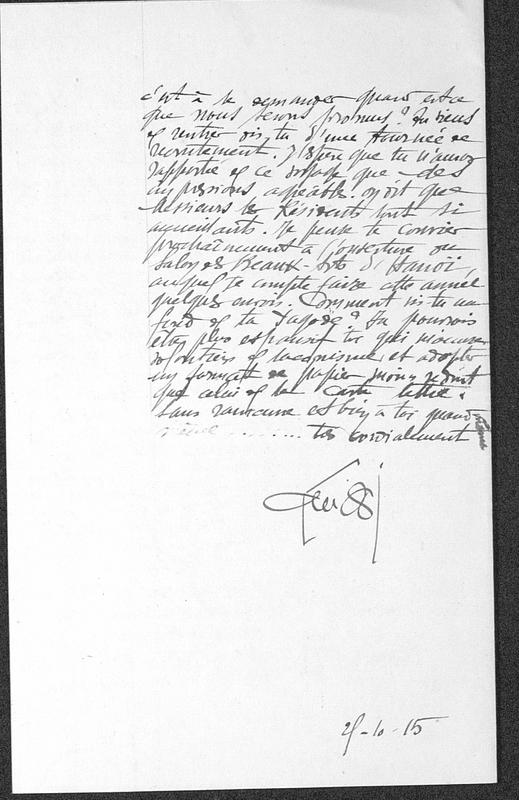 c'est à se demander quand est-ce
que nous serons promus? Tu viens
de rentrer dis tu d'une tournée de
recrutement. J'espère que tu n'auras
rapporté de ce voyage que des
impressions agréables. on dit que
Messieurs les Résidents sont si
Je pense te convier
prochainement à l'ouverture du
Salon des Beaux-Arts d'Hanoï,
auquel je compte faire cette année
quelques envois. Comment vis-tu au
fond de ta Pagode? Tu pourrais
être plus expansif toi qui
volontiers de laconisme, et adopter
un format de papier moins réduit
que celui de la carte lettre.
Sans rancune et bien à toi quand même
........ très cordialement
25-10-15